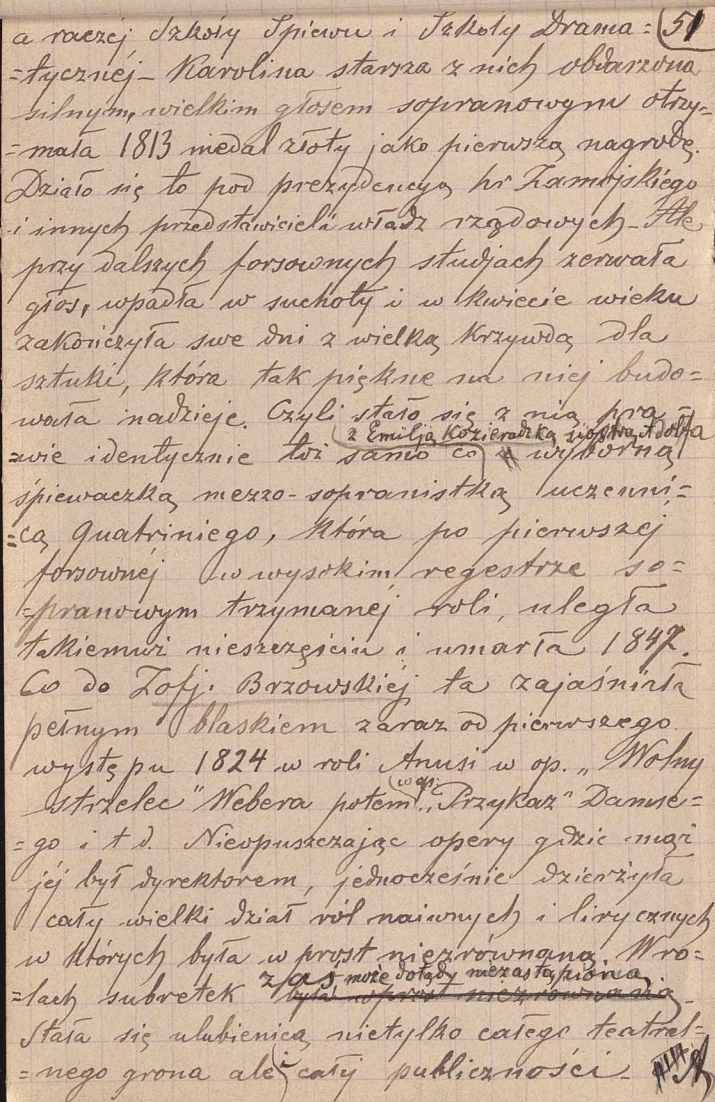 a raczéj Szkoły Śpiewu i Szkoły Drama= 51
=tycznéj – Karolina starsza z nich obdarzona
silnym, wielkim głosem sopranowym otrzy-
=mała 1813 medal złoty jako pierwszą nagrodę.
Działo się to pod prezydencyą hr Zamojskiego
i innych przedstawicieli władz rządowych – Ale
przy dalszych forsownych studjach zerwała
głos, wpadła w suchoty i w kwiecie wieku
zakończyła swe dni z wielką krzywdą dla
sztuki, która tak piękne na niej budo=
wała nadzieje. Czyli stało się z nią pra=
z Emilją Kozieradzką siostrą Adolfa
=wie identycznie toż samo co wyborną
śpiewaczką mezzo-sopranistką uczenni=
=cą Quatriniego, która po pierwszej
forsownéj w wysokim regestrze so=
=pranowym trzymanéj roli, uległa
takiemuż nieszczęściu i umarła 1847.
Co do Zofj. Brzowskiéj ta zajaśniała
pełnym blaskiem zaraz od pierwszego
występu 1824 w roli Anusi w op. „Wolny
strzelec" Webera potem w op. „Przykaz" Damse=
=go i t d. Nieopuszczając opery gdzie mąż
jéj był dyrektorem, jednocześnie dzierżyła
cały wielki dział ról naiwnych i lirycznych
w których była wprost niezrównaną. W ro=
zaś może dotąd niezastąpiona
=lach subretek była wprost niezrównaną
Stała się ulubienicą nietylko całego teatral-
=nego grona ale i całéj publiczności –